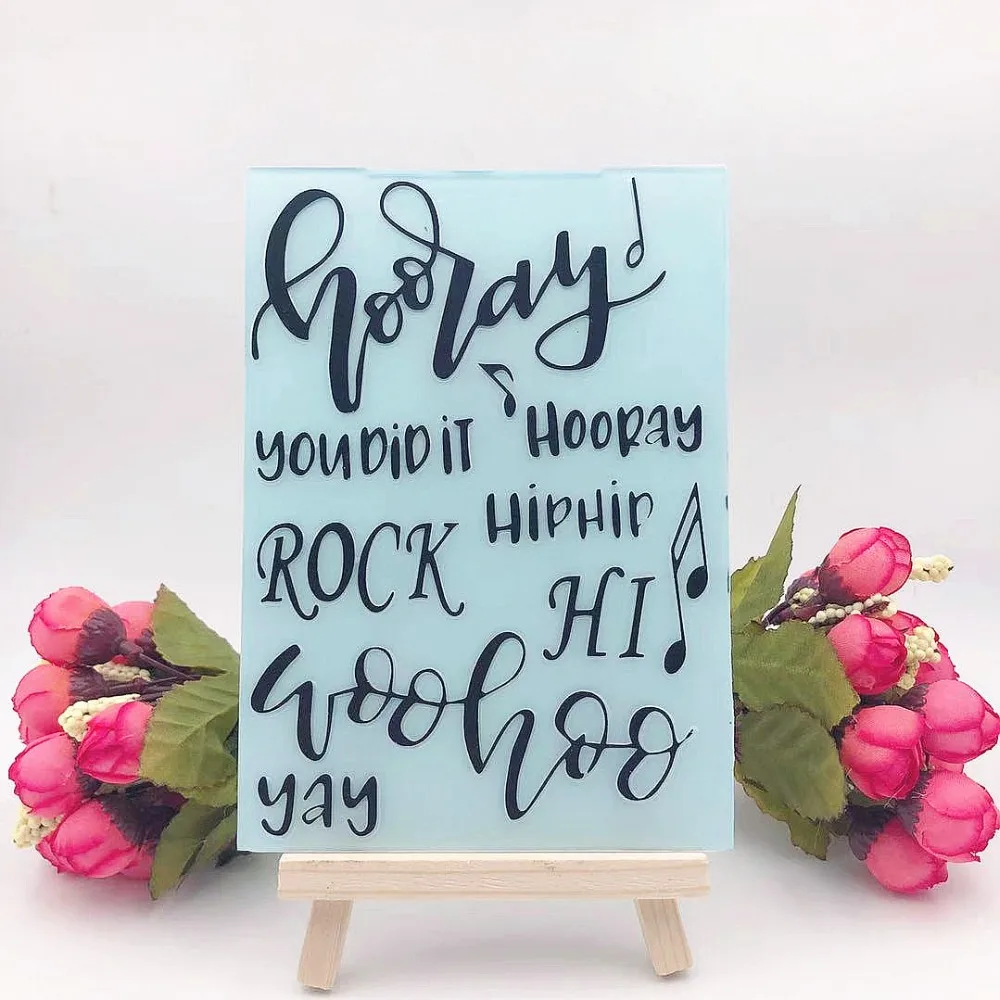 hooray
YOU DiD iT
HOORAY
HiPHiP
ROCK
HI
woohoo
yay